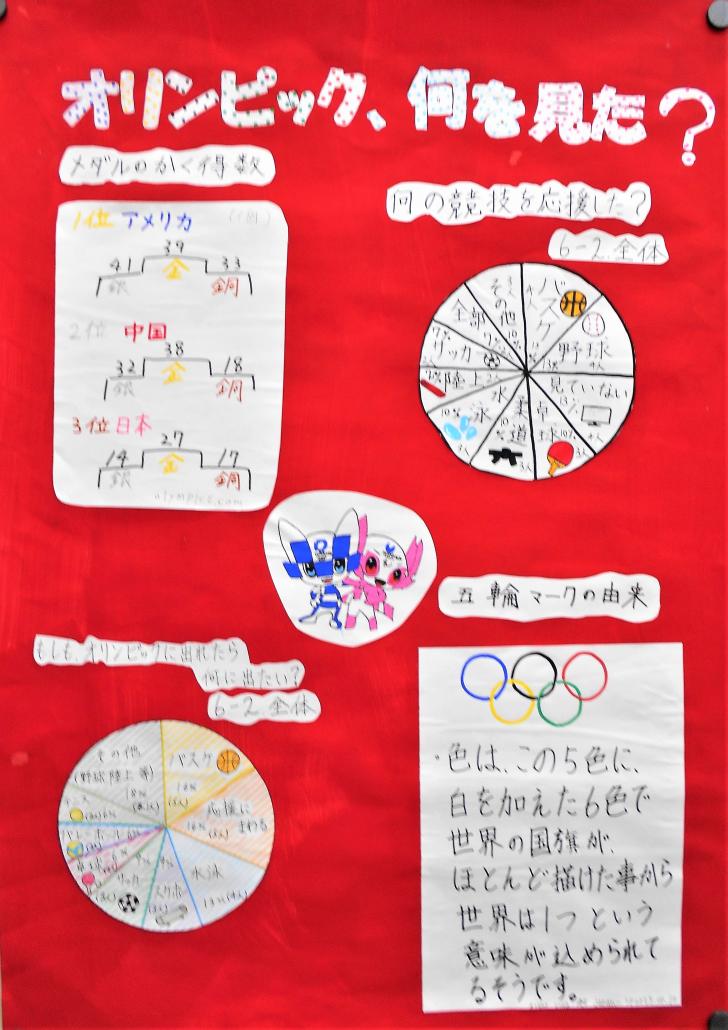 オリンピック、何を見た?
メダルのかく得数
1位 アメリカ
39
41 金 33
銀 銅
2位 中国
38
32 金 18
銀 銅
3位 日本
27
14 金 17
銀 銅
olympics.com
何の競技を応援した?
6-2 全体
バスケ
野球
見ていない
卓球
柔道
水泳
陸上
サッカー
全部
その他
五輪マークの由来
・色は、この5色に、
白を加えた6色で
世界の国旗が、
ほとんど描けた事から
世界は1つという
意味が込められて
るそうです。
もしも、オリンピックに出れたら
何に出たい?
6-2 全体
バスケ
応援に
まわる
水泳
スケボー
サッカー
バレーボール
テニス
その他
(野球 陸上 等)